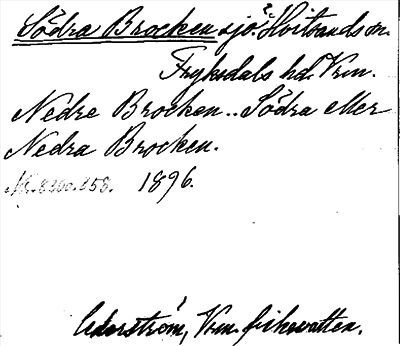 Södra Brocken sjö: Hvitsands sn.
Fryksdals hd. Vrm.
Nedre Brocken.. Södra eller
Nedra Brocken.
1896.
Cederström, Vrm. fiskevatten.